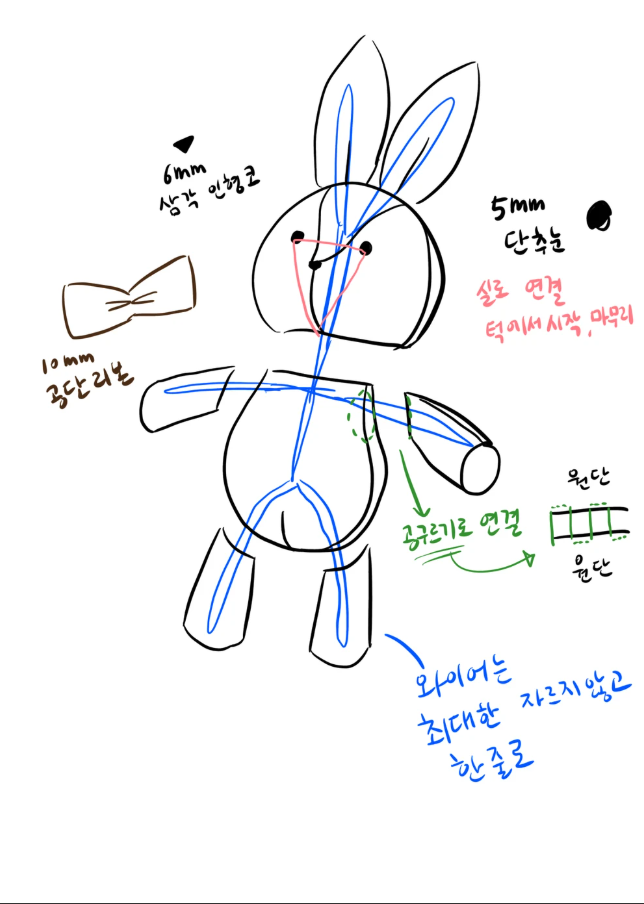 6mm
삼각 인형코
5mm
단추눈
실로 연결
턱에서 시작, 마무리
10mm
공단리본
원단
공구르기로 연결
원단
와이어는
최대한 자르지 않고
한 줄로